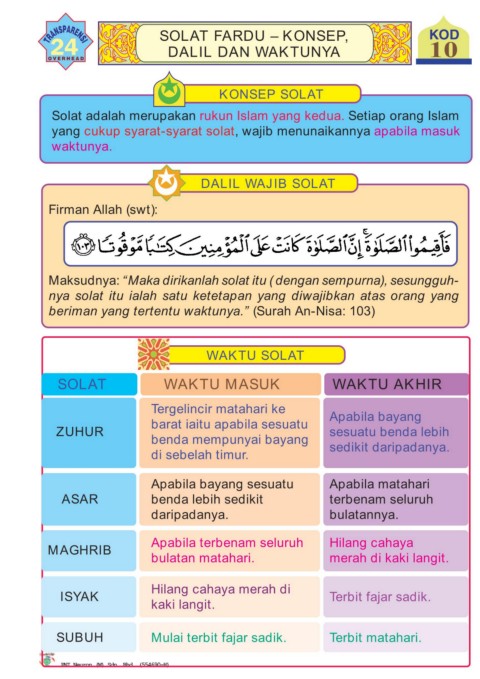 TRANSPARENSI
24
OVERHEAD
SOLAT FARDU – KONSEP,
DALIL DAN WAKTUNYA
KOD
10
KONSEP SOLAT
Solat adalah merupakan rukun Islam yang kedua. Setiap orang Islam
yang cukup syarat-syarat solat, wajib menunaikannya apabila masuk
waktunya.
DALIL WAJIB SOLAT
Firman Allah (swt):
فَأَقِيمُوا۟ ٱلصَّلَوٰةَ ۚ إِنَّ ٱلصَّلَوٰةَ كَانَتْ عَلَى ٱلْمُؤْمِنِينَ كِتَٰبًا مَّوْقُوتًا ﴿١٠٣﴾
Maksudnya: “Maka dirikanlah solat itu ( dengan sempurna), sesungguh-
nya solat itu ialah satu ketetapan yang diwajibkan atas orang yang
beriman yang tertentu waktunya.” (Surah An-Nisa: 103)
WAKTU SOLAT
SOLAT WAKTU MASUK WAKTU AKHIR
ZUHUR
Tergelincir matahari ke
barat iaitu apabila sesuatu
benda mempunyai bayang
di sebelah timur.
Apabila bayang
sesuatu benda lebih
sedikit daripadanya.
ASAR
Apabila bayang sesuatu
benda lebih sedikit
daripadanya.
Apabila matahari
terbenam seluruh
bulatannya.
MAGHRIB
Apabila terbenam seluruh
bulatan matahari.
Hilang cahaya
merah di kaki langit.
ISYAK
Hilang cahaya merah di
kaki langit.
Terbit fajar sadik.
SUBUH
Mulai terbit fajar sadik.
Terbit matahari.